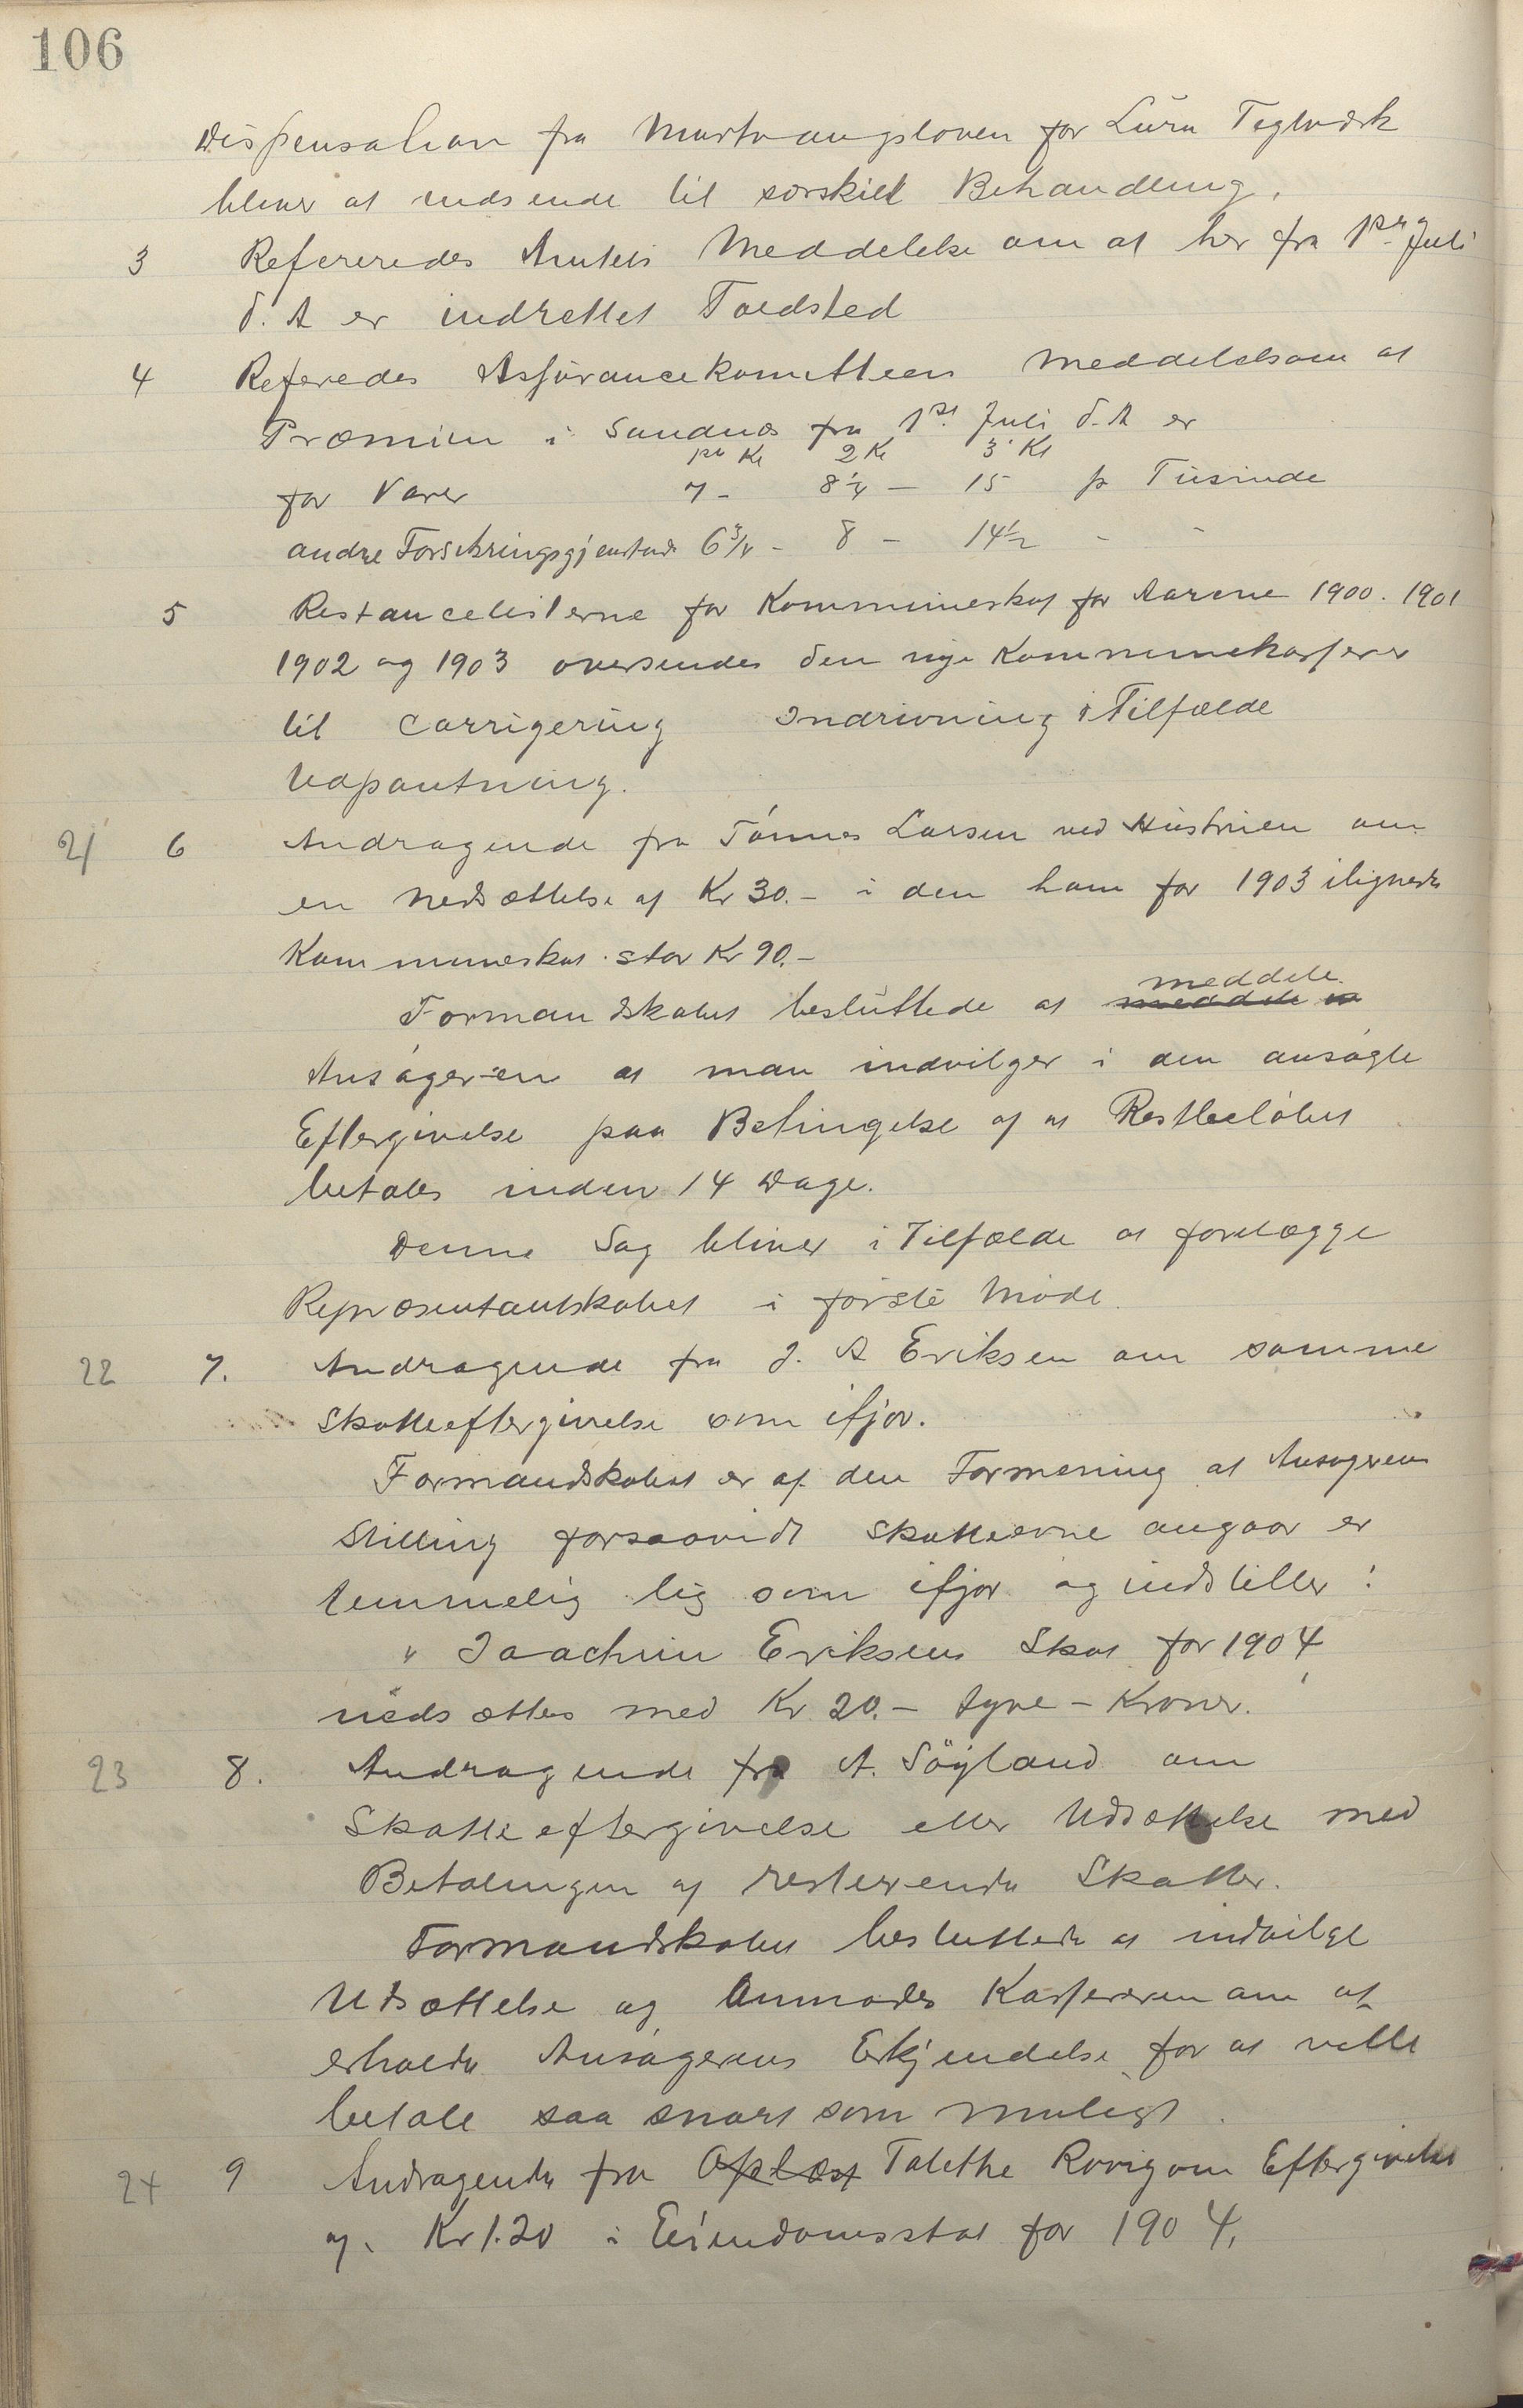 106
Dispensation fra Murtvangsloven for Lura Teglværk
bliver at indsende til særskilt Behandling.
3 Refereredes Amtets Meddelelse om at her fra 1ste Juli
d. A er indrettet Toldsted
4 Referedes Assurancekomitteens Meddelelse om at
Præmien i Sandnæs fra 1st Juli d. A er
1ste Kl 2 Kl 3' Kl
for Varer 7 - 8 1/4 - 15 p Tusinde
andre Forsikringsgjenstande 6 3/4 - 8 - 14 1/2 - -
5 Restancelisterne for Kommuneskat for Aarene 1900. 1901
1902 og 1903 oversendes den nye Kommunekasserer
til Corrigering Indrivning i Tilfælde
Udpantning.
21 6 Andragende fra Tønnes Larsen ved Hustruen om
en Nedsættelse af Kr 30.- i den ham for 1903 ilignede
Kommuneskat stor Kr 90.-
meddele
Formandskabet besluttede at meddele
Ansøgeren at man indvilger i den ansøgte
Eftergivelse paa Betingelse af at Restbeløbet
betales inden 14 Dage.
Denne Sag bliver i Tilfælde at forelægge
Repræsentantskabet i første Møde.
22 7. Andragende fra J. A Eriksen om samme
Skatteeftergivelse som ifjor.
Formandskabet er af den Formening at Ansøgerens
Stilling forsaavidt Skatteevne angaar er
temmelig lig som ifjor og indstiller:
" Joachim Eriksens Skat for 1904
nedsættes med Kr 20.- tyve - Kroner.
23 8. Andragende fra A. Söyland om
Skatteeftergivelse eller Udsættelse med
Betalingen af resterende Skatter.
Formandskabet besluttede at indvilge
Udsættelse og Anmodes Kassereren om at
erholde Ansøgerens Erkjendelse for at ville
betale saa snart som muligt.
24 9 Andragende fra Oplæst Talethe Rovig om Eftergivelse
af Kr 1.20 i Eiendomsskat for 1904.